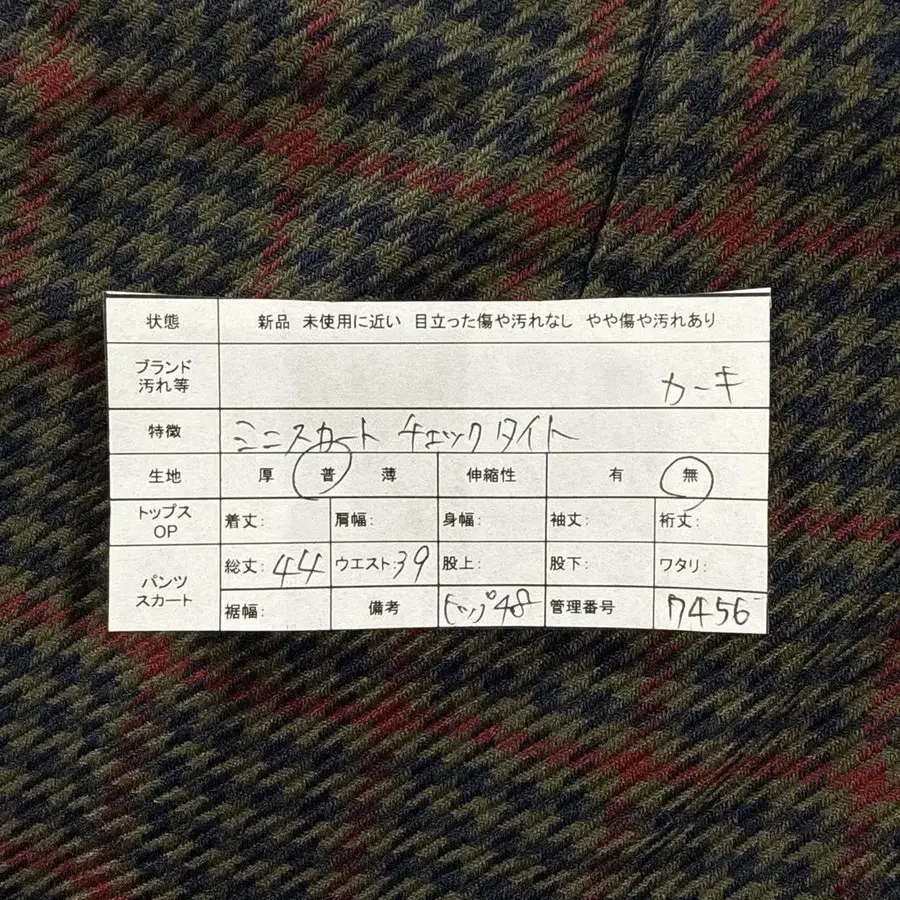 状態 新品 未使用に近い 目立った傷や汚れなし やや傷や汚れあり
ブランド
汚れ等 カーキ
特徴 ミニスカート チェック タイト
生地 厚 普 薄 伸縮性 有 無
トップス
OP 着丈: 肩幅: 身幅: 袖丈: 裄丈:
パンツ
スカート 総丈: 44 ウエスト: 39 股上: 股下: ワタリ:
裾幅: 備考 ヒップ48 管理番号 7456